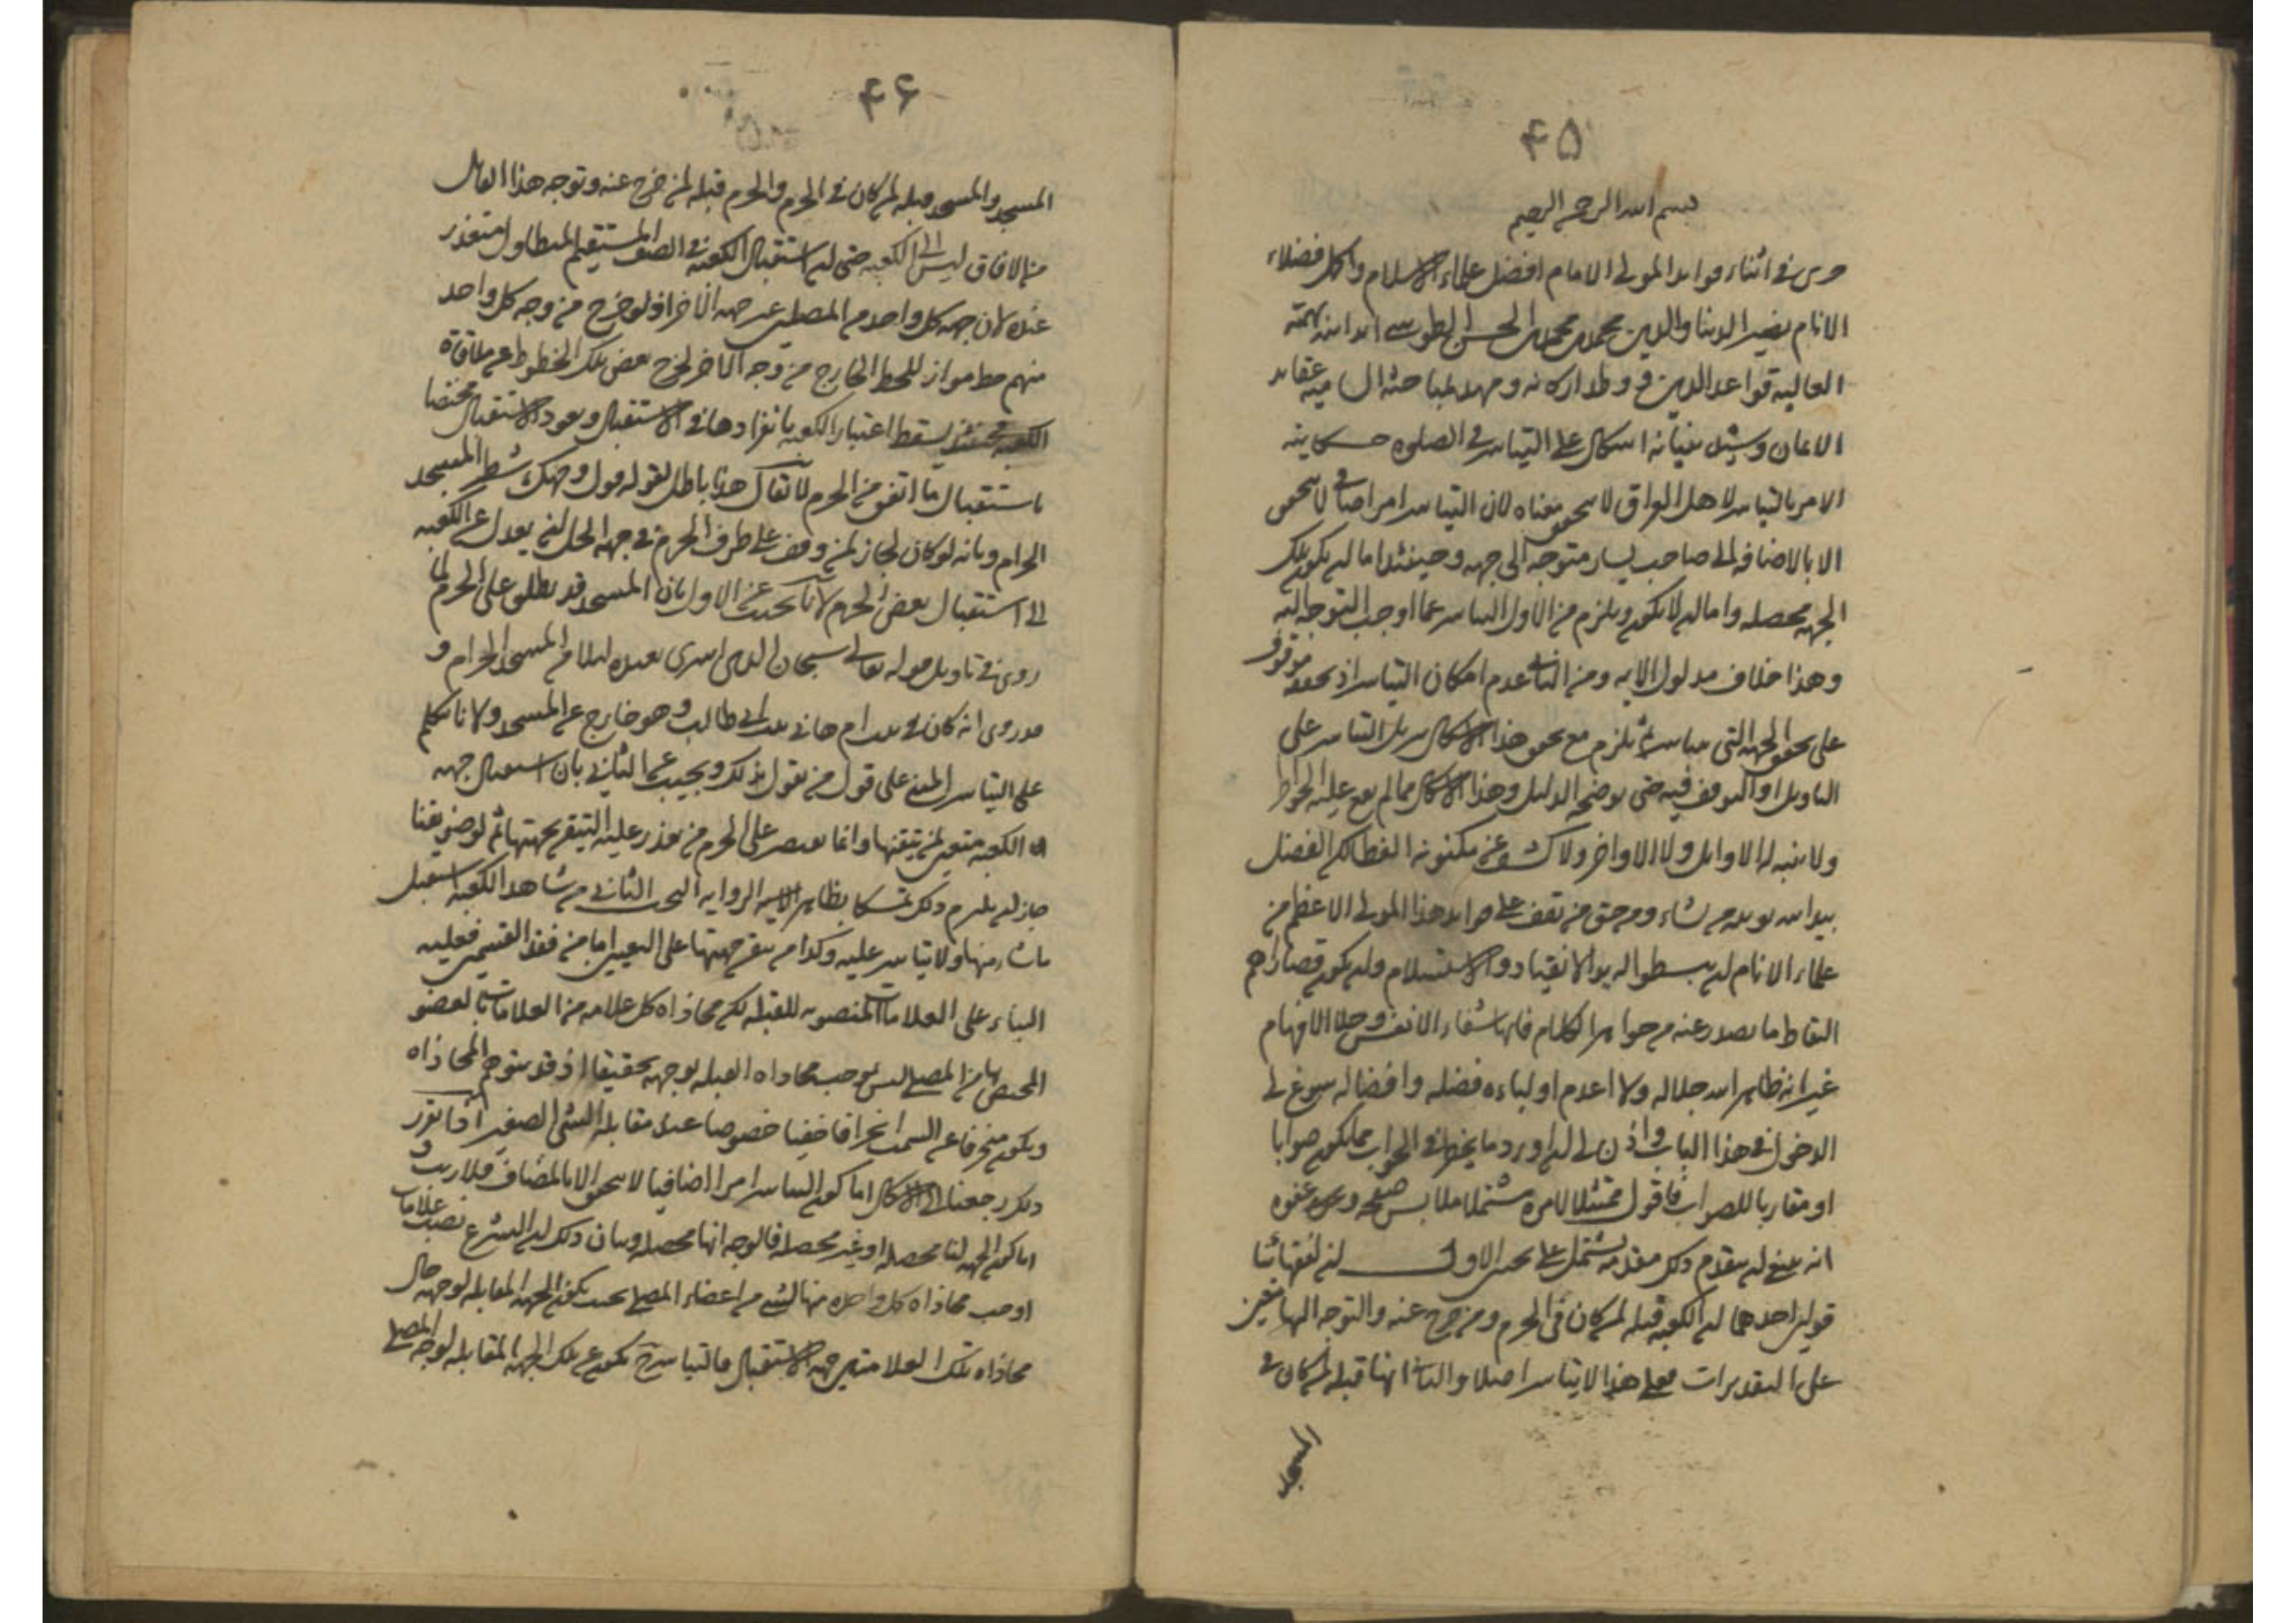 ۴۵
بسم الله الرحمن الرحيم
جرى في اثناء فوايد المولى الامام افضل علماء الاسلام واكمل فضلاء
الانام نصير الدنيا والدين محمد بن محمد بن الحسن الطوسي ايد الله بهمته
العالية قواعد الدين ووطد اركانه ومهد بمباحثه السامية عقايد
الايمان وشيد بنيانه اشكال على التياسر في الصلوه حكايته
الامر بالتياسر لاهل العراق لا يتحقق معناه لان التياسر امر اضافي لا يتحقق
الا بالاضافه الى صاحب يسار متوجه الى جهه وحينئذ اما ان يكون تلك
الجهه محصله واما ان لا يكون ويلزم من الاول التياسر عما وجب التوجه اليه
وهذا خلاف مدلول الايه ومن الثاني عدم امكان التياسر اذ تحققه موقوف
على تحقق الجهه التي يتياسر عنها ثم يلزم مع تحقق هذا الاشكال تنزيل التياسر على
التاويل او التوقف فيه حتى يوضحه الدليل وهذا الاشكال مما لم تقع عليه الخواطر
ولا تنبه له الاوايل ولا الاواخر ولا كشف عن مكنونه الغطا لكن الفضل
بيد الله يوتيه من يشاء ومن حق من يقف على فوايد هذا المولى الاعظم من
علماء الانام ان يبسطوا له يد الانقياد والاستسلام وان يكون قصاراهم
التقاط ما يصدر عنه من جواهر الكلام فانها شفاء الانفس وجلا الافهام
غير انه ظاهر الله جلاله ولا اعدم اولياءه فضله وافضاله سوغ لي
الدخول في هذا الباب واذن لي ان اورد ما يخطر في الجواب مما يكون صوابا
او مقاربا للصواب فاقول ممتثلا لامره مشتملا ملابس صفحه وعفوه
انه ينبغي ان يقدم ذلك مقدمه تشتمل على بحثين الاول لفقهائنا
قولين احدهما ان الكعبه قبله لمن كان في الحرم ومن خرج عنه والتوجه اليها متعين
على التقديرات فعلى هذا لا يتياسر اصلا والثاني انها قبله لمن كان في
المسجد
۴۶
المسجد والمسجد قبله لمن كان في الحرم والحرم قبله لمن خرج عنه وتوجه هذا القايل
من الافاق ليس الى الكعبه حتى ان استقبال الكعبه في الصف المستقيم المتطاول متعذر
عنده لان جهه كل واحد من المصلين غير جهه الاخر اذ لو خرج من وجه كل واحد
منهم خط مواز للخط الخارج من وجه الاخر لخرج بعض تلك الخطوط عن ملاقاه
الكعبه فحينئذ يسقط اعتبار الكعبه بانفرادها في الاستقبال ويعود الاستقبال مختصا
باستقبال ما اتفق من الحرم لا يقال هذا باطل بقوله فول وجهك شطر المسجد
الحرام وبانه لو كان لجاز لمن وقف على طرف الحرم في جهه الحل ان يعدل عن الكعبه
الى استقبال بعض الحرم لانا نجيب عن الاول بان المسجد قد يطلق على الحرم لما
روي في تاويل قوله تعالى سبحان الذي اسرى بعبده ليلا من المسجد الحرام و
قد روى انه كان في بيت ام هاني بنت ابي طالب وهو خارج عن المسجد ولانا نتكلم
على التياسر المبني على قول من يقول بذلك ونجيب عن الثاني بان استقبال جهه
الكعبه متعين لمن تيقنها وانما يقتصر على الحرم من تعذر عليه التيقن بجهتها ثم لو ضويقنا
جاز ان يلتزم ذلك تمسكا بظاهر الروايه البحث الثاني من شاهد الكعبه استقبل
ما شاء منها ولا تياسر عليه وكذا من تيقن جهتها على التعيين اما من فقد القسمين فعليه
البناء على العلامات المنصوبه للقبله لكن محاذاه كل علامه من العلامات بالعضو
المختص بها من المصلي ليس يوجب محاذاه القبله بوجهه تحقيقا اذ قد يتوهم المحاذاه
ويكون منحرفا عن السمت انحرافا خفيا خصوصا عند مقابله الشي الصغير اذا تقرر
ذلك رجعنا الى الاشكال اما كون التياسر امرا اضافيا لا يتحقق الا بالمضاف فلا ريب و
اما كون الجهه لنا محصله او غير محصله فالوجه انها محصله وبيان ذلك ان الشرع نصب علامات
اوجب محاذاه كل واحده منها لشيء من اعضاء المصلي بحيث يكون الجهه المقابله لوجهه حال
محاذاه تلك العلامه هي جهه الاستقبال فالتياسر ح يكون عن تلك الجهه المقابله لوجه المصلي